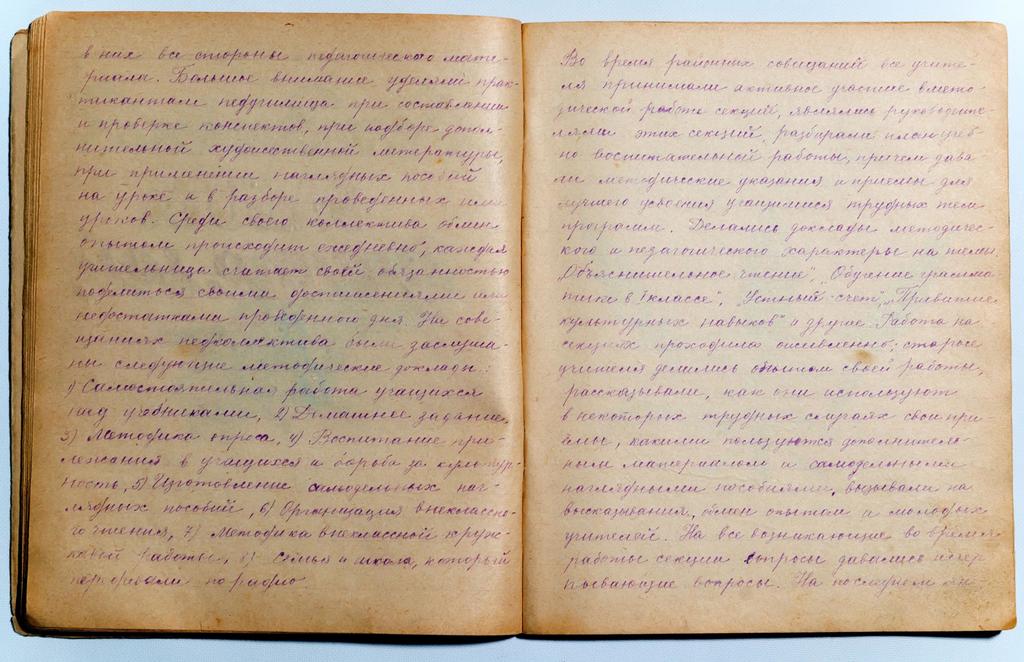 в них все стороны педагогического мате-
риала. Большое внимание уделяли прак-
тикантам педучилища при составлении
и проверке конспектов, при подборе допол-
нительной художественной литературы,
при применении наглядных пособий
на уроке и в разборе проведенных ими
уроков. Среди своего коллектива обмен
опытом происходит ежедневно, каждая
учительница считает своей обязанностью
поделиться своими достижениями или
недостатками проведенного дня. На сове-
щаниях педколлектива были заслуша-
ны следующие методические доклады:
1) Самостоятельная работа учащихся
над учебниками, 2) Домашнее задание,
3) Методика опроса, 4) Воспитание при-
лежания в учащихся и борьба за культур-
ность, 5) Изготовление самодельных наг-
лядных пособий, 6) Организация внеклассно-
го чтения, 7) Методика внеклассной круж-
ковой работы, 8) Семья и школа, который
передавали по радио
Во время районных совещаний все учите-
ля принимали активное участие в мето-
дической работе секций, являлись руководите-
лями этих секций, разбирали план учеб-
но воспитательной работы, причем дава-
ли методические указания и приемы для
лучшего усвоения учащимися трудных тем
программ. Делались доклады методичес-
кого и педагогического характеры на темы:
„Объяснительное чтение", „Обучение грамма
тике в I классе", „Устный счет", „Привитие
культурных навыков" и другие. Работа на
секциях проходила оживленно; старые
учителя делились опытом своей работы,
рассказывали, как они используют
в некоторых трудных случаях свои при
ёмы, какими пользуются дополнитель-
ным материалом и самодельными
наглядными пособиями, вызывали на
высказывания, обмен опытом и молодых
учителей. На все возникающие во время
работы секции вопросы давались исчер
пывающие вопросы. На последнем